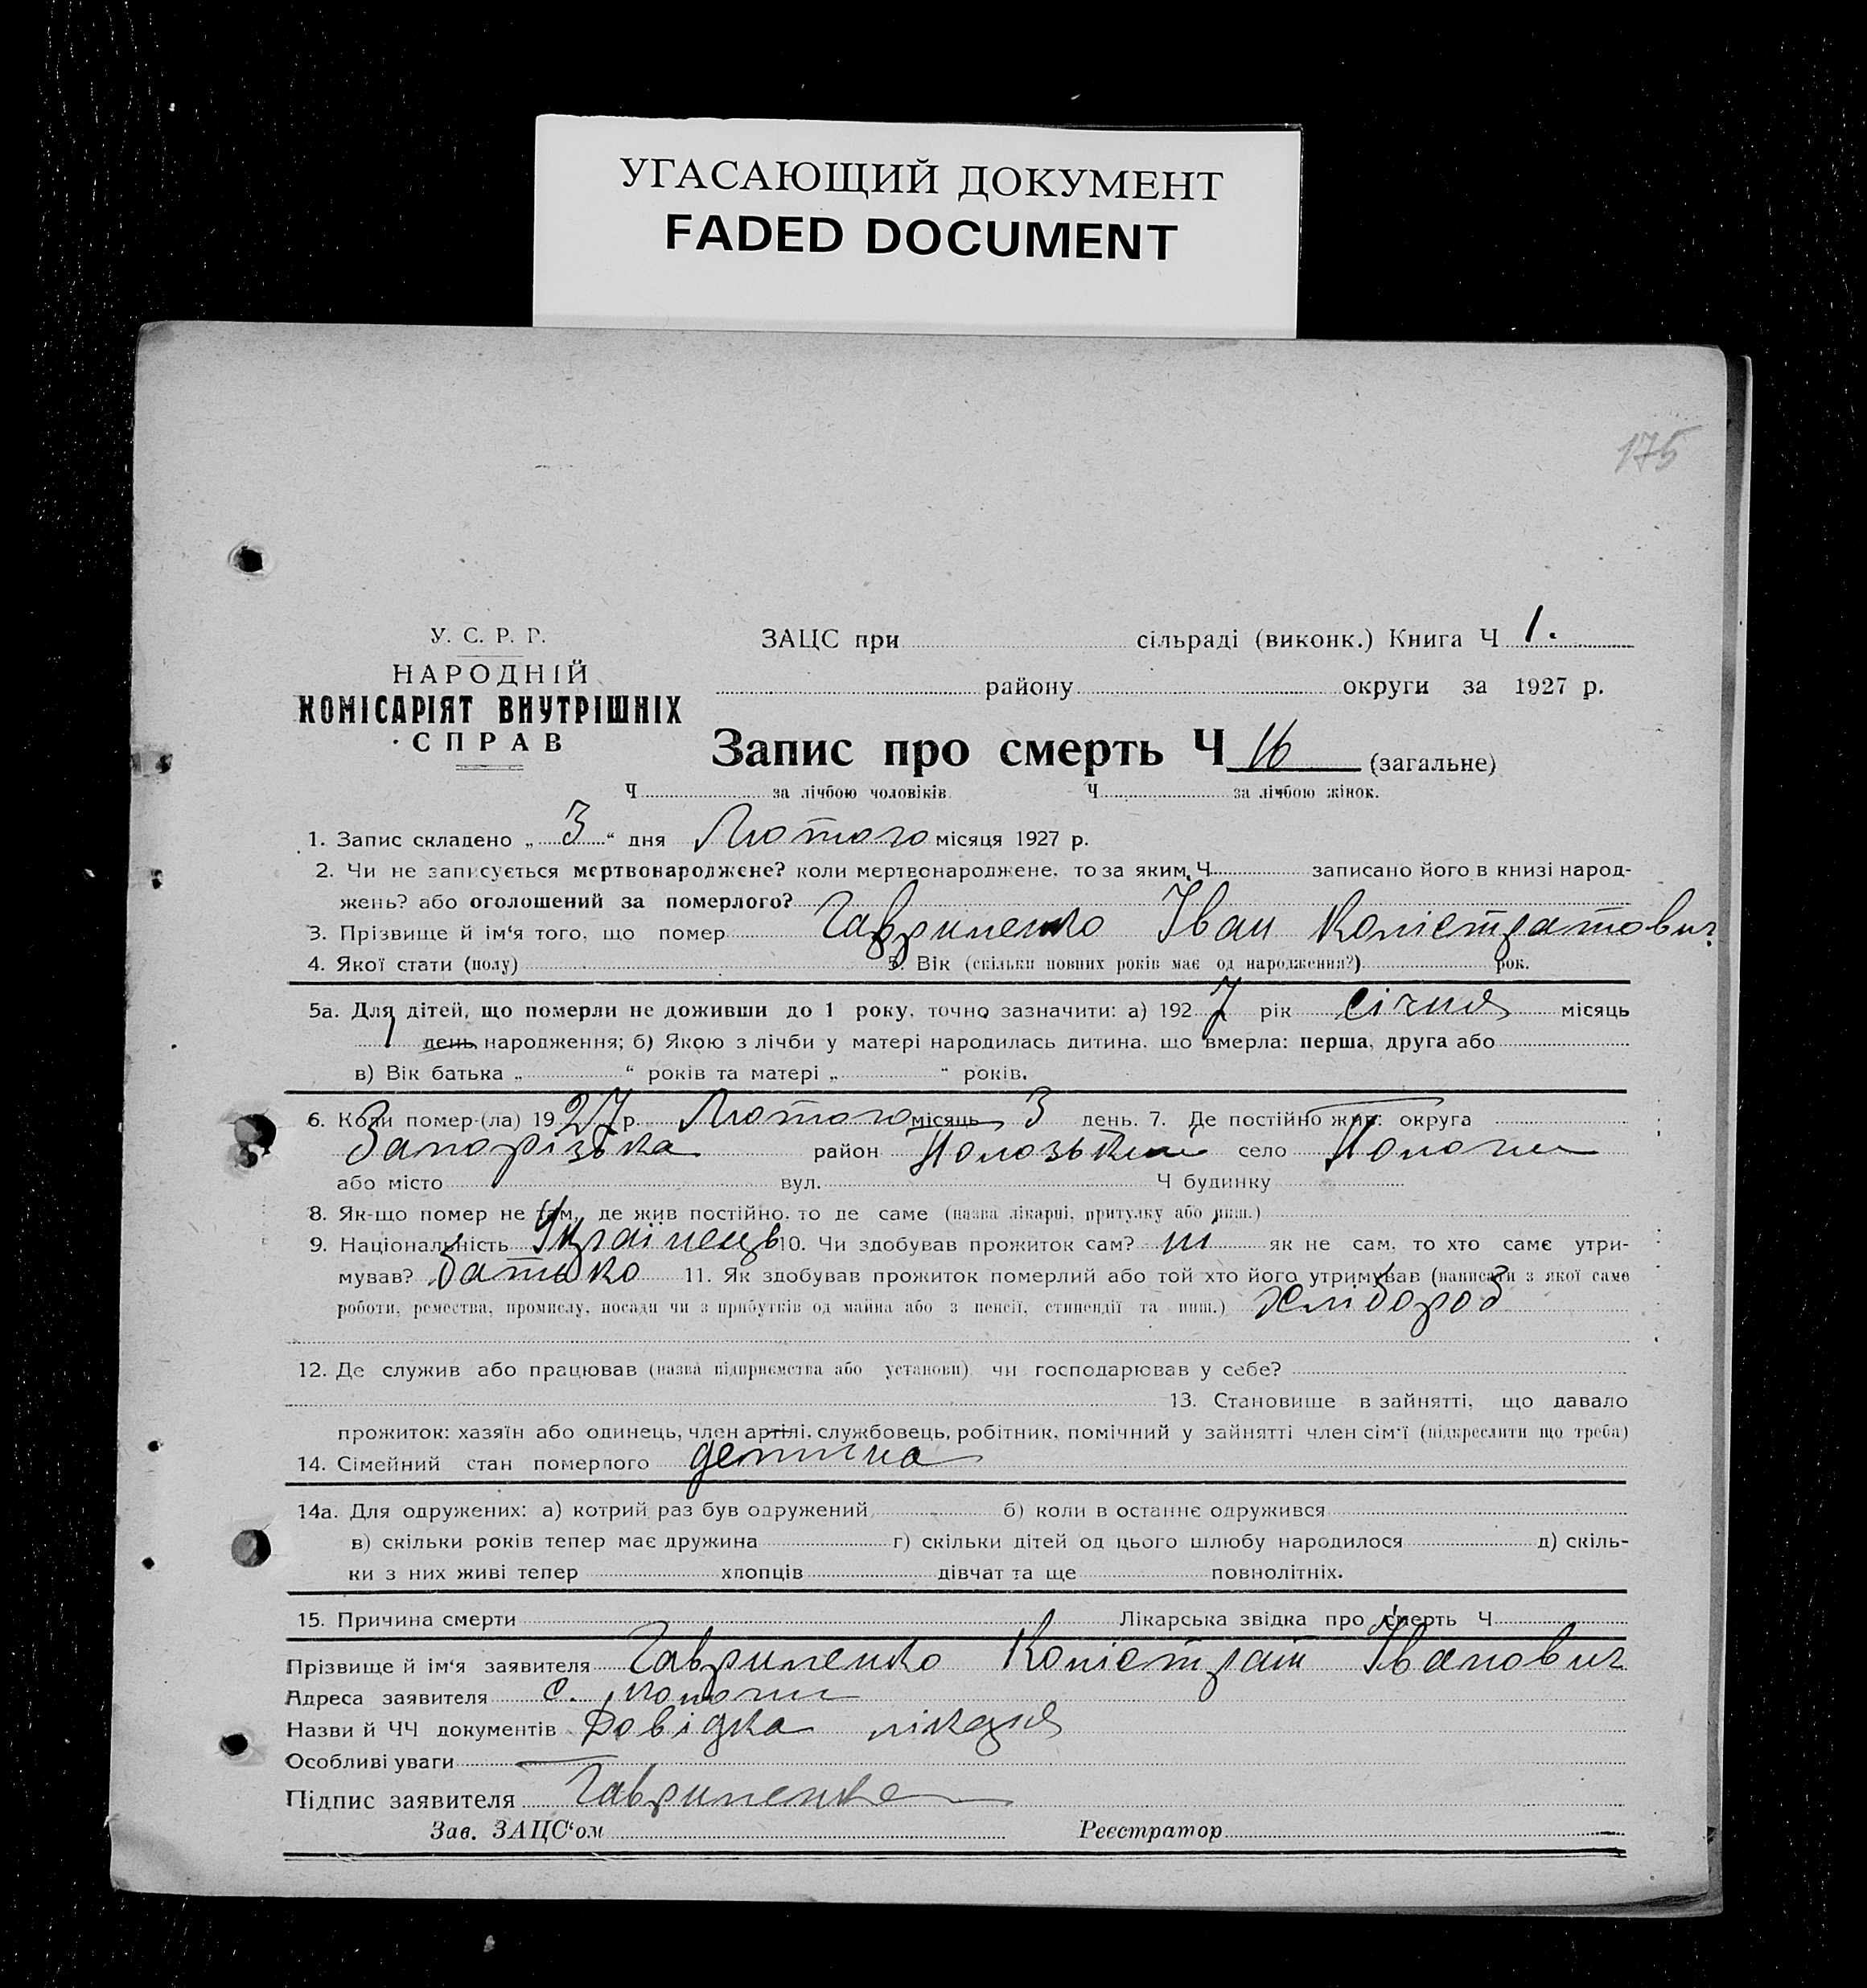 УГАСАЮЩИЙ ДОКУМЕНТ
FADED DOCUMENT
175
У. С. Р. Р.
НАРОДНІЙ
КОМІСАРІЯТ ВНУТРІШНІХ
СПРАВ
ЗАЦС при сільраді (виконк.) Книга Ч 1.
району округи за 1927 р.
Запис про смерть Ч 16 (загальне)
Ч за лічбою чоловіків. Ч за лічбою жінок.
1. Запис складено „ 3 “ дня Лютого місяця 1927 р.
2. Чи не записується мертвонароджене? коли мертвонароджене, то за яким Ч записано його в книзі народ-
жень? або оголошений за померлого?
3. Прізвище й ім‘я того, що помер Гавриленко Іван Калістратович
4. Якої стати (полу) 5. Вік (скільки повних років має од народження?) рок.
5а. Для дітей, що померли не доживши до 1 року, точно зазначити: а) 1927 рік січня місяць
1 день народження; б) Якою з лічби у матері народилась дитина, що вмерла: перша, друга або
в) Вік батька „ “ років та матері „ “ років.
6. Коли помер-(ла) 1927 р. Лютого місяць 3 день. 7. Де постійно жив: округа
Запорізька район Пологький село Пологи
або місто вул. Ч будинку
8. Як-що помер не там, де жив постійно, то де саме (назва лікарні, притулку або инш.)
9. Національність Українець 10. Чи здобував прожиток сам? ні як не сам, то хто саме утри-
мував? батько 11. Як здобував прожиток померлий або той хто його утримував (написати з якої саме
роботи, ремества, промислу, посади чи з прибутків од майна або з пенсії, стипендії та инш.) хлібороб
12. Де служив або працював (назва підприємства або установи) чи господарював у себе?
13. Становище в зайнятті, що давало
прожиток: хазяїн або одинець, член артілі, службовець, робітник, помічний у зайнятті член сім‘ї (підкреслити що треба)
14. Сімейний стан померлого детина
14а. Для одружених: а) котрий раз був одружений б) коли в останнє одружився
в) скільки років тепер має дружина г) скільки дітей од цього шлюбу народилося д) скіль-
ки з них живі тепер хлопців дівчат та ще повнолітніх.
15. Причина смерти Лікарська звідка про смерть Ч
Прізвище й ім‘я заявителя Гавриленко Калістрат Іванович
Адреса заявителя с. Пологи
Назви й ЧЧ документів Довідка лікаря
Особливі уваги
Підпис заявителя Гавриленко
Зав. ЗАЦС‘ом Реєстратор